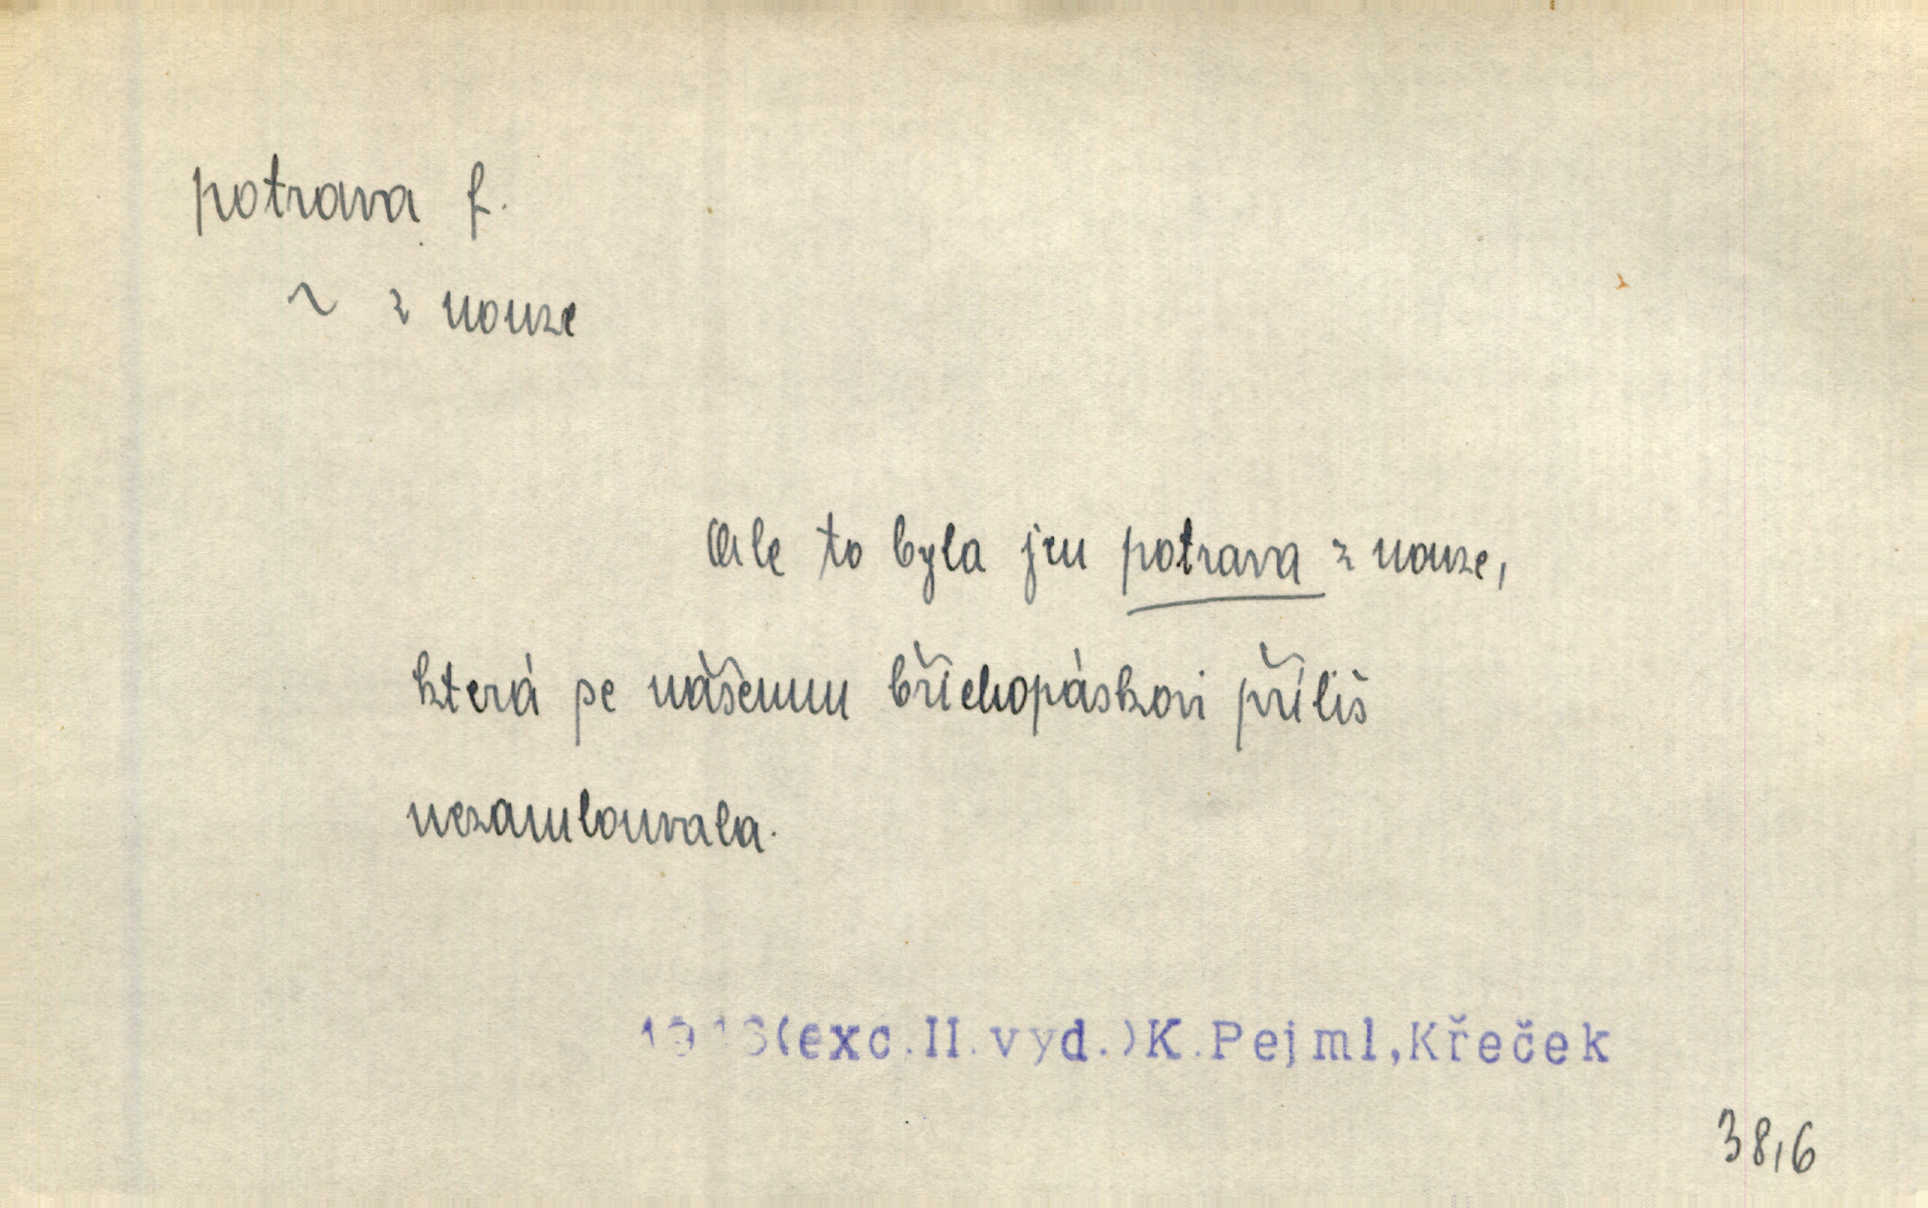 potrava f.
~ z nouze
Ale to byla jen potrava z nouze,
která se našemu břichopáskovi příliš
nezamlouvala.
(exc.II.vyd.)K.Pejml,Křeček
38,6